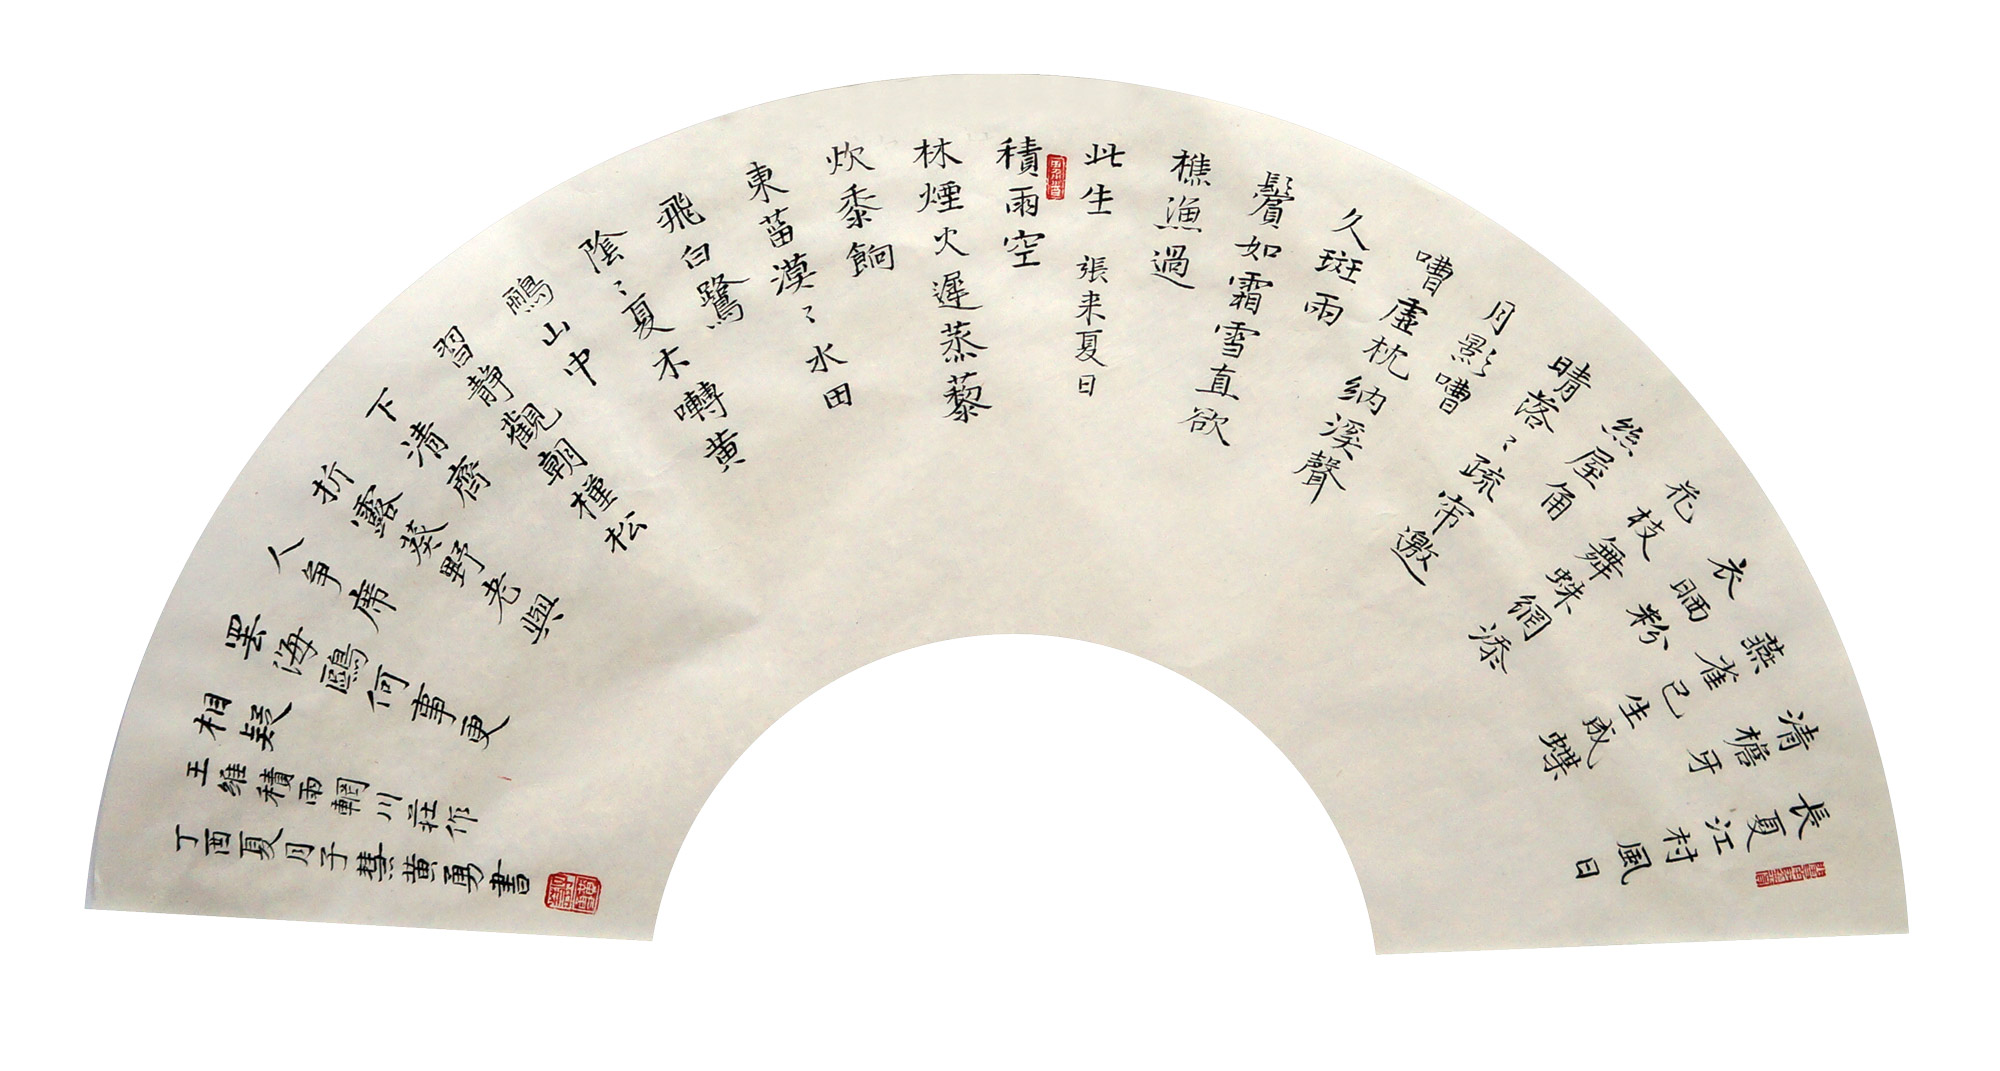 長夏江村風日
清檐牙
燕雀已生成蝶
衣晒粉
花枝舞蛛網添
絲屋角
晴落々疏帘邀
月影嘈
嘈虛枕納溪聲
久斑兩
鬢如霜雪直欲
樵漁過
此生 張耒夏日
積雨空
林煙火遲蒸藜
炊黍餉
東菑漠々水田
飛白鷺
陰々夏木囀黄
鸝山中
習静觀朝槿松
下清齊
折露葵野老與
人爭席
罷海鷗何事更
相疑
王維積雨輞川莊作
丁酉夏月子慧黄勇書